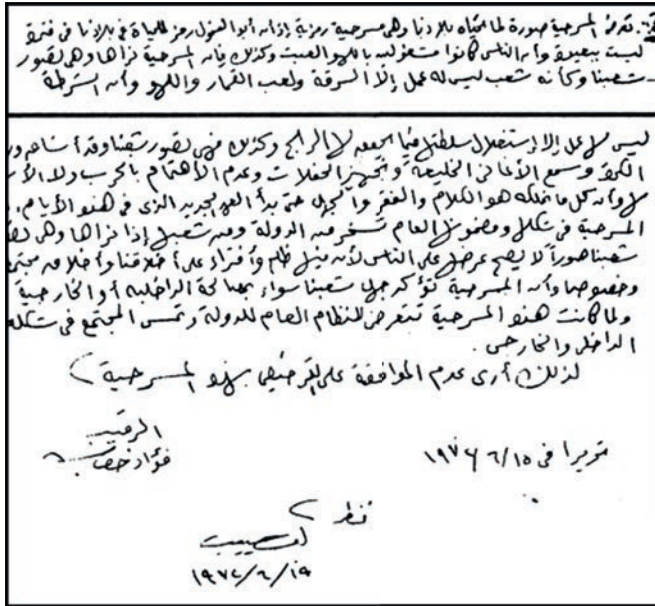 تعرض المسرحية صورة لما تحياه بلادنا وهى مسرحية رمزية إذ أنه أبو الهول رمز للحياة فى بلادنا فى فترة
ليست ببعيدة وأن الناس كانوا مشغولين باللهو والعبث وكذلك فإن المسرحية نراها وهى تصور
شعبنا وكأنه شعب ليس له عمل إلا السرقة ولعب القمار واللهو وأن الشرطة
ليس لها عمل إلا استغلال سلطتها فيما الراجح وكذلك فهى تصور شعبنا وقد
الكرة وسمع الأغانى الخليعة الحفلات وعدم الأهتمام بالحرب ولا
لا وأن كل ما هو الكلام والفقر والجهل حتى بدأ العهد الجديد الذى فى هذه الأيام
المسرحية فى شكلها ومضمونها العام تسخر من الدولة ومن شعبها إذا نراها وهى
شعبنا صوراً لا يصح عرضها على الناس لأن فيها ظلم وأفتراء على أخلاقنا وأخلاق
وخصوصا وأن المسرحية تؤكد جهل شعبنا سواء الداخلية أو الخارجية
ولما كانت هذه المسرحية تتعرض للنظام العام للدولة وتمس المجتمع فى شكله
الداخلى والخارجى .
لذلك أرى عدم الموافقة على الترخيص بهذه المسرحية
الرقيب
فؤاد
تحريرا فى ١٥/٦/١٩٧٤
نظر